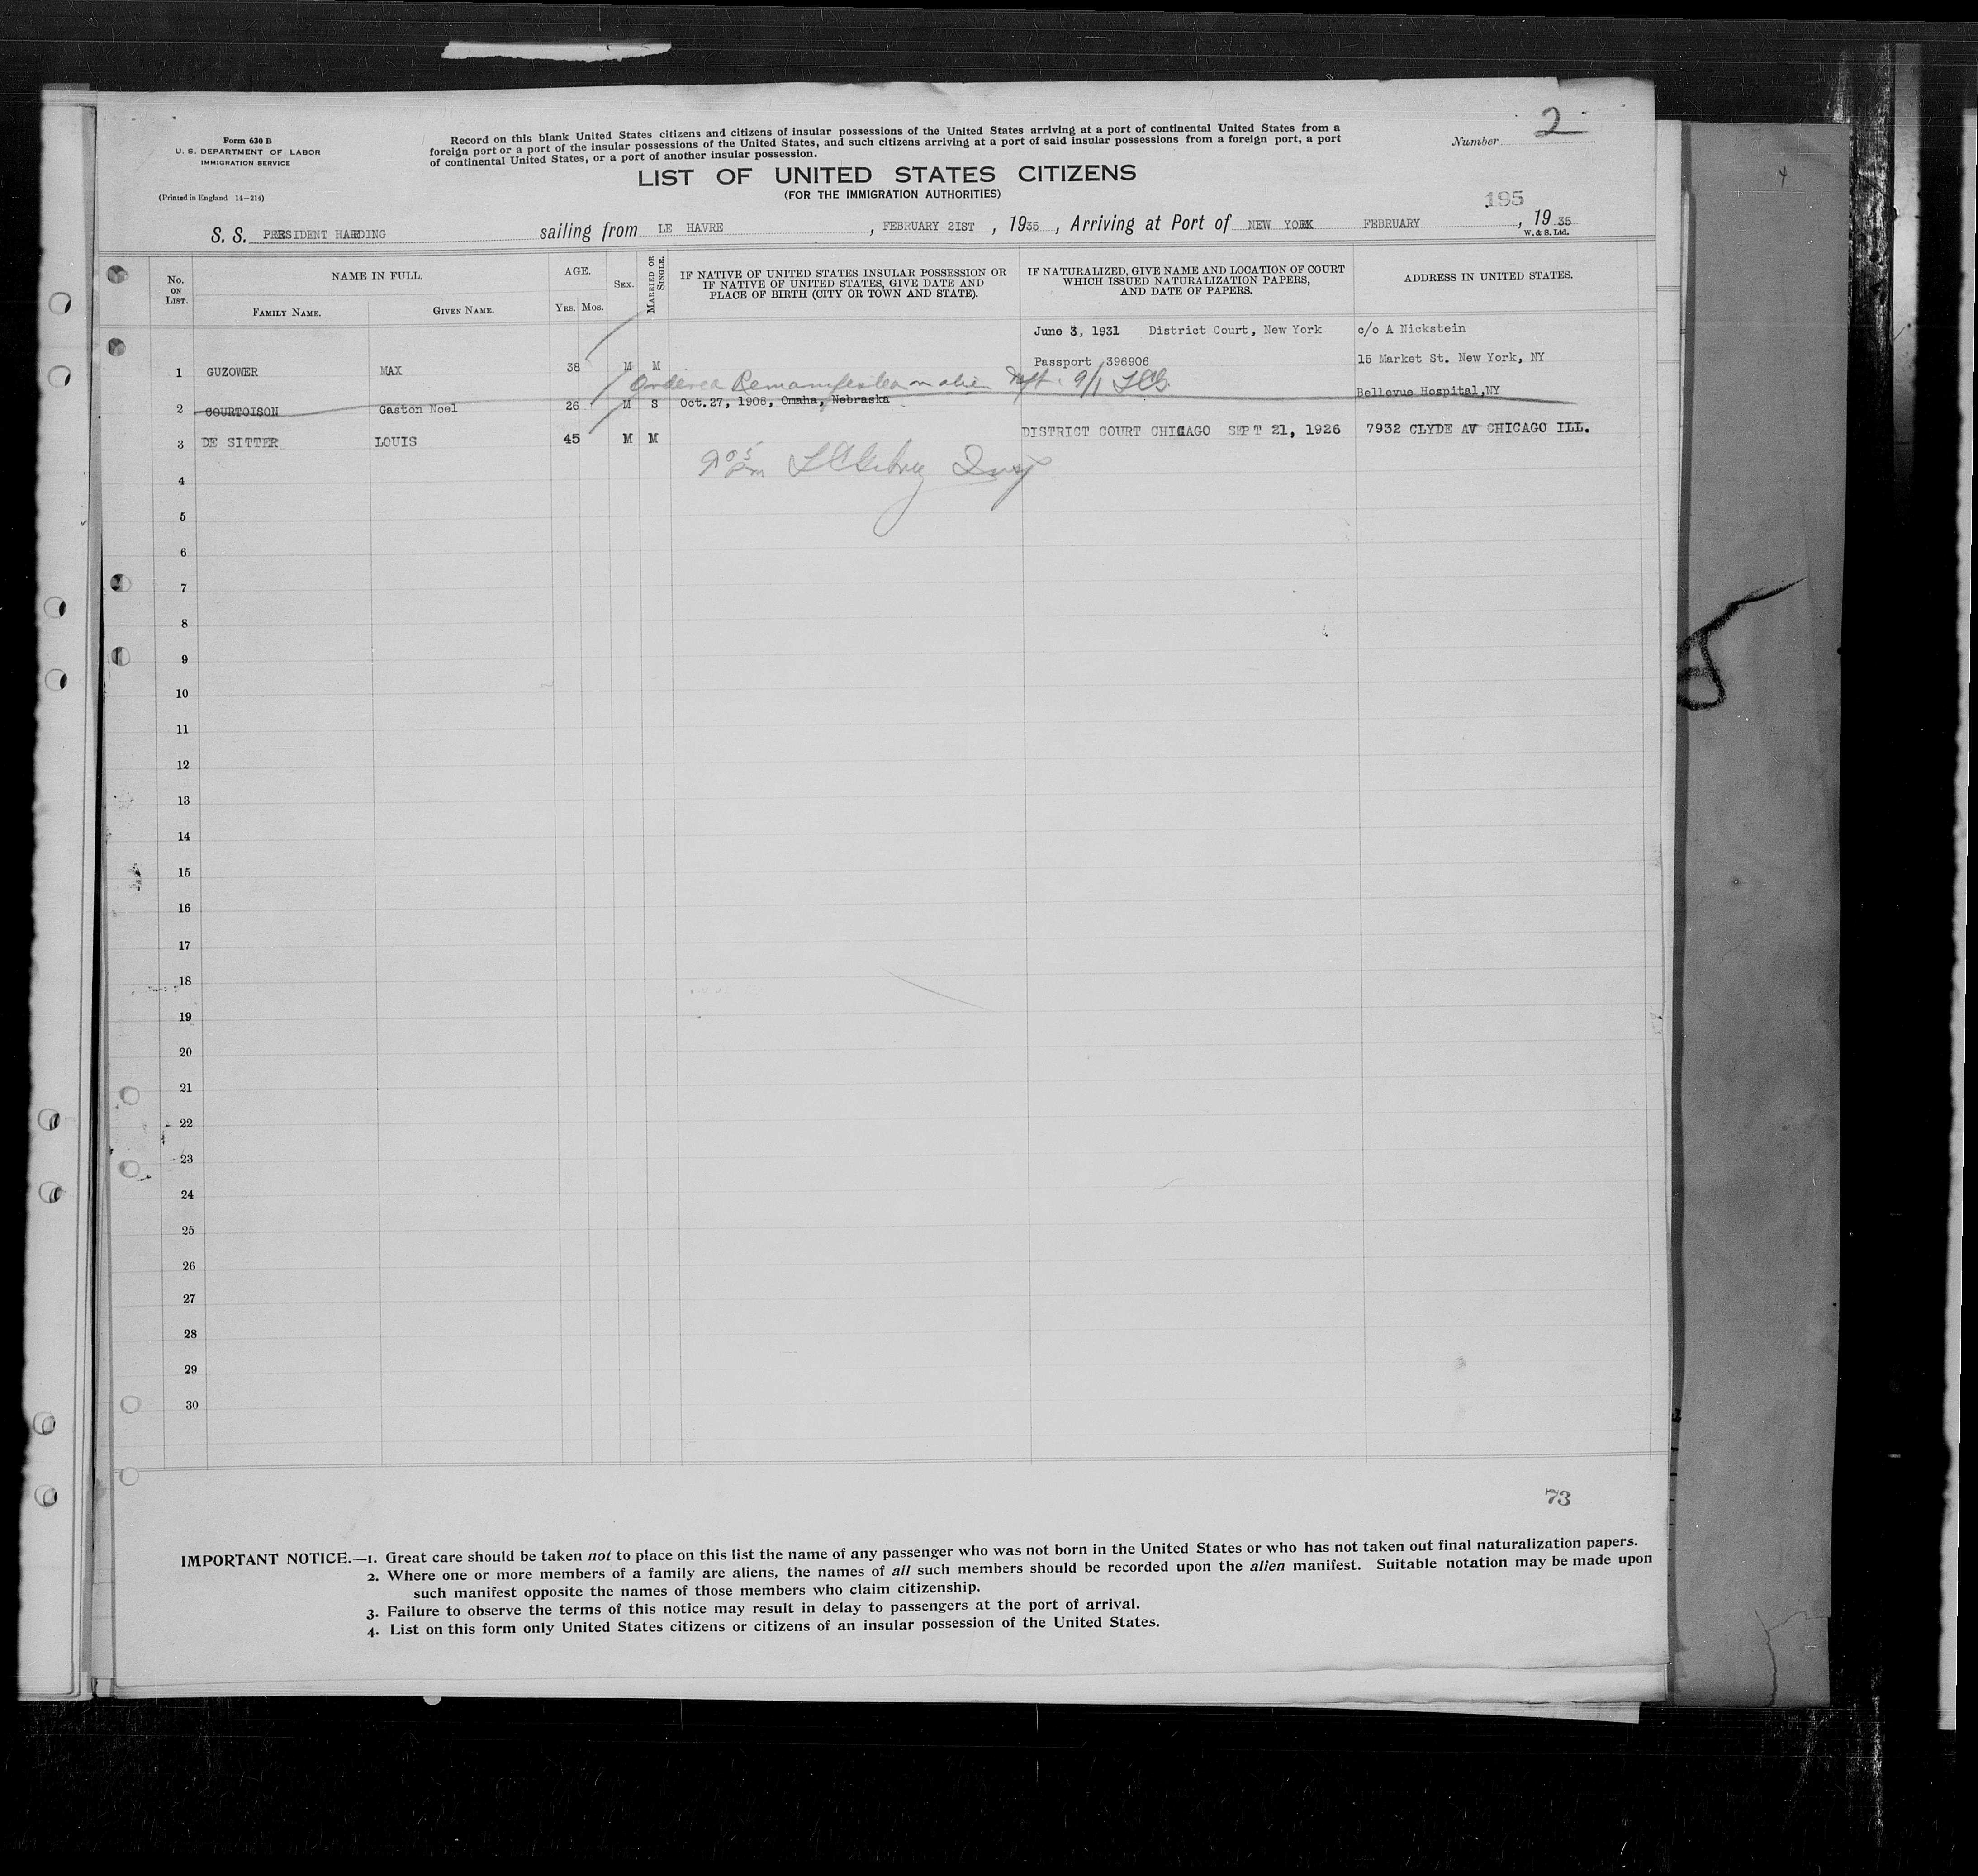 2
Form 630 B
U. S. DEPARTMENT OF LABOR
IMMIGRATION SERVICE
(Printed in England 14—214)
Record on this blank United States citizens and citizens of insular possessions of the United States arriving at a port of continental United States from a
foreign port or a port of the insular possessions of the United States, and such citizens arriving at a port of said insular possessions from a foreign port, a port
of continental United States, or a port of another insular possession.
Number
LIST OF UNITED STATES CITIZENS
(FOR THE IMMIGRATION AUTHORITIES)
195
S. S. PRESIDENT HARDING sailing from LE HAVRE , FEBRUARY 21ST , 1935 , Arriving at Port of NEW YORK FEBRUARY , 19 35
W. & S. Ltd.
No. ON LIST.
NAME IN FULL.
FAMILY NAME. GIVEN NAME.
AGE.
YRS. MOS.
SEX.
MARRIED OR SINGLE.
IF NATIVE OF UNITED STATES INSULAR POSSESSION OR
IF NATIVE OF UNITED STATES, GIVE DATE AND
PLACE OF BIRTH (CITY OR TOWN AND STATE).
IF NATURALIZED, GIVE NAME AND LOCATION OF COURT
WHICH ISSUED NATURALIZATION PAPERS,
AND DATE OF PAPERS.
ADDRESS IN UNITED STATES.
June 3, 1931 District Court, New York c/o A Nickstein
Passport 396906 15 Market St. New York, NY
1 GUZOWER MAX 38 M M
Ordered Remanifested on alien Mft. 9/1 LCG.
Bellevue Hospital,NY
2 COURTOISON Gaston Noel 26 M S Oct.27, 1908, Omaha, Nebraska
3 DE SITTER LOUIS 45 M M DISTRICT COURT CHICAGO SEPT 21, 1926 7932 CLYDE AV CHICAGO ILL.
Insp
4
5
6
7
8
9
10
11
12
13
14
15
16
17
18
19
20
21
22
23
24
25
26
27
28
29
30
73
IMPORTANT NOTICE.—1. Great care should be taken not to place on this list the name of any passenger who was not born in the United States or who has not taken out final naturalization papers.
2. Where one or more members of a family are aliens, the names of all such members should be recorded upon the alien manifest. Suitable notation may be made upon
such manifest opposite the names of those members who claim citizenship.
3. Failure to observe the terms of this notice may result in delay to passengers at the port of arrival.
4. List on this form only United States citizens or citizens of an insular possession of the United States.